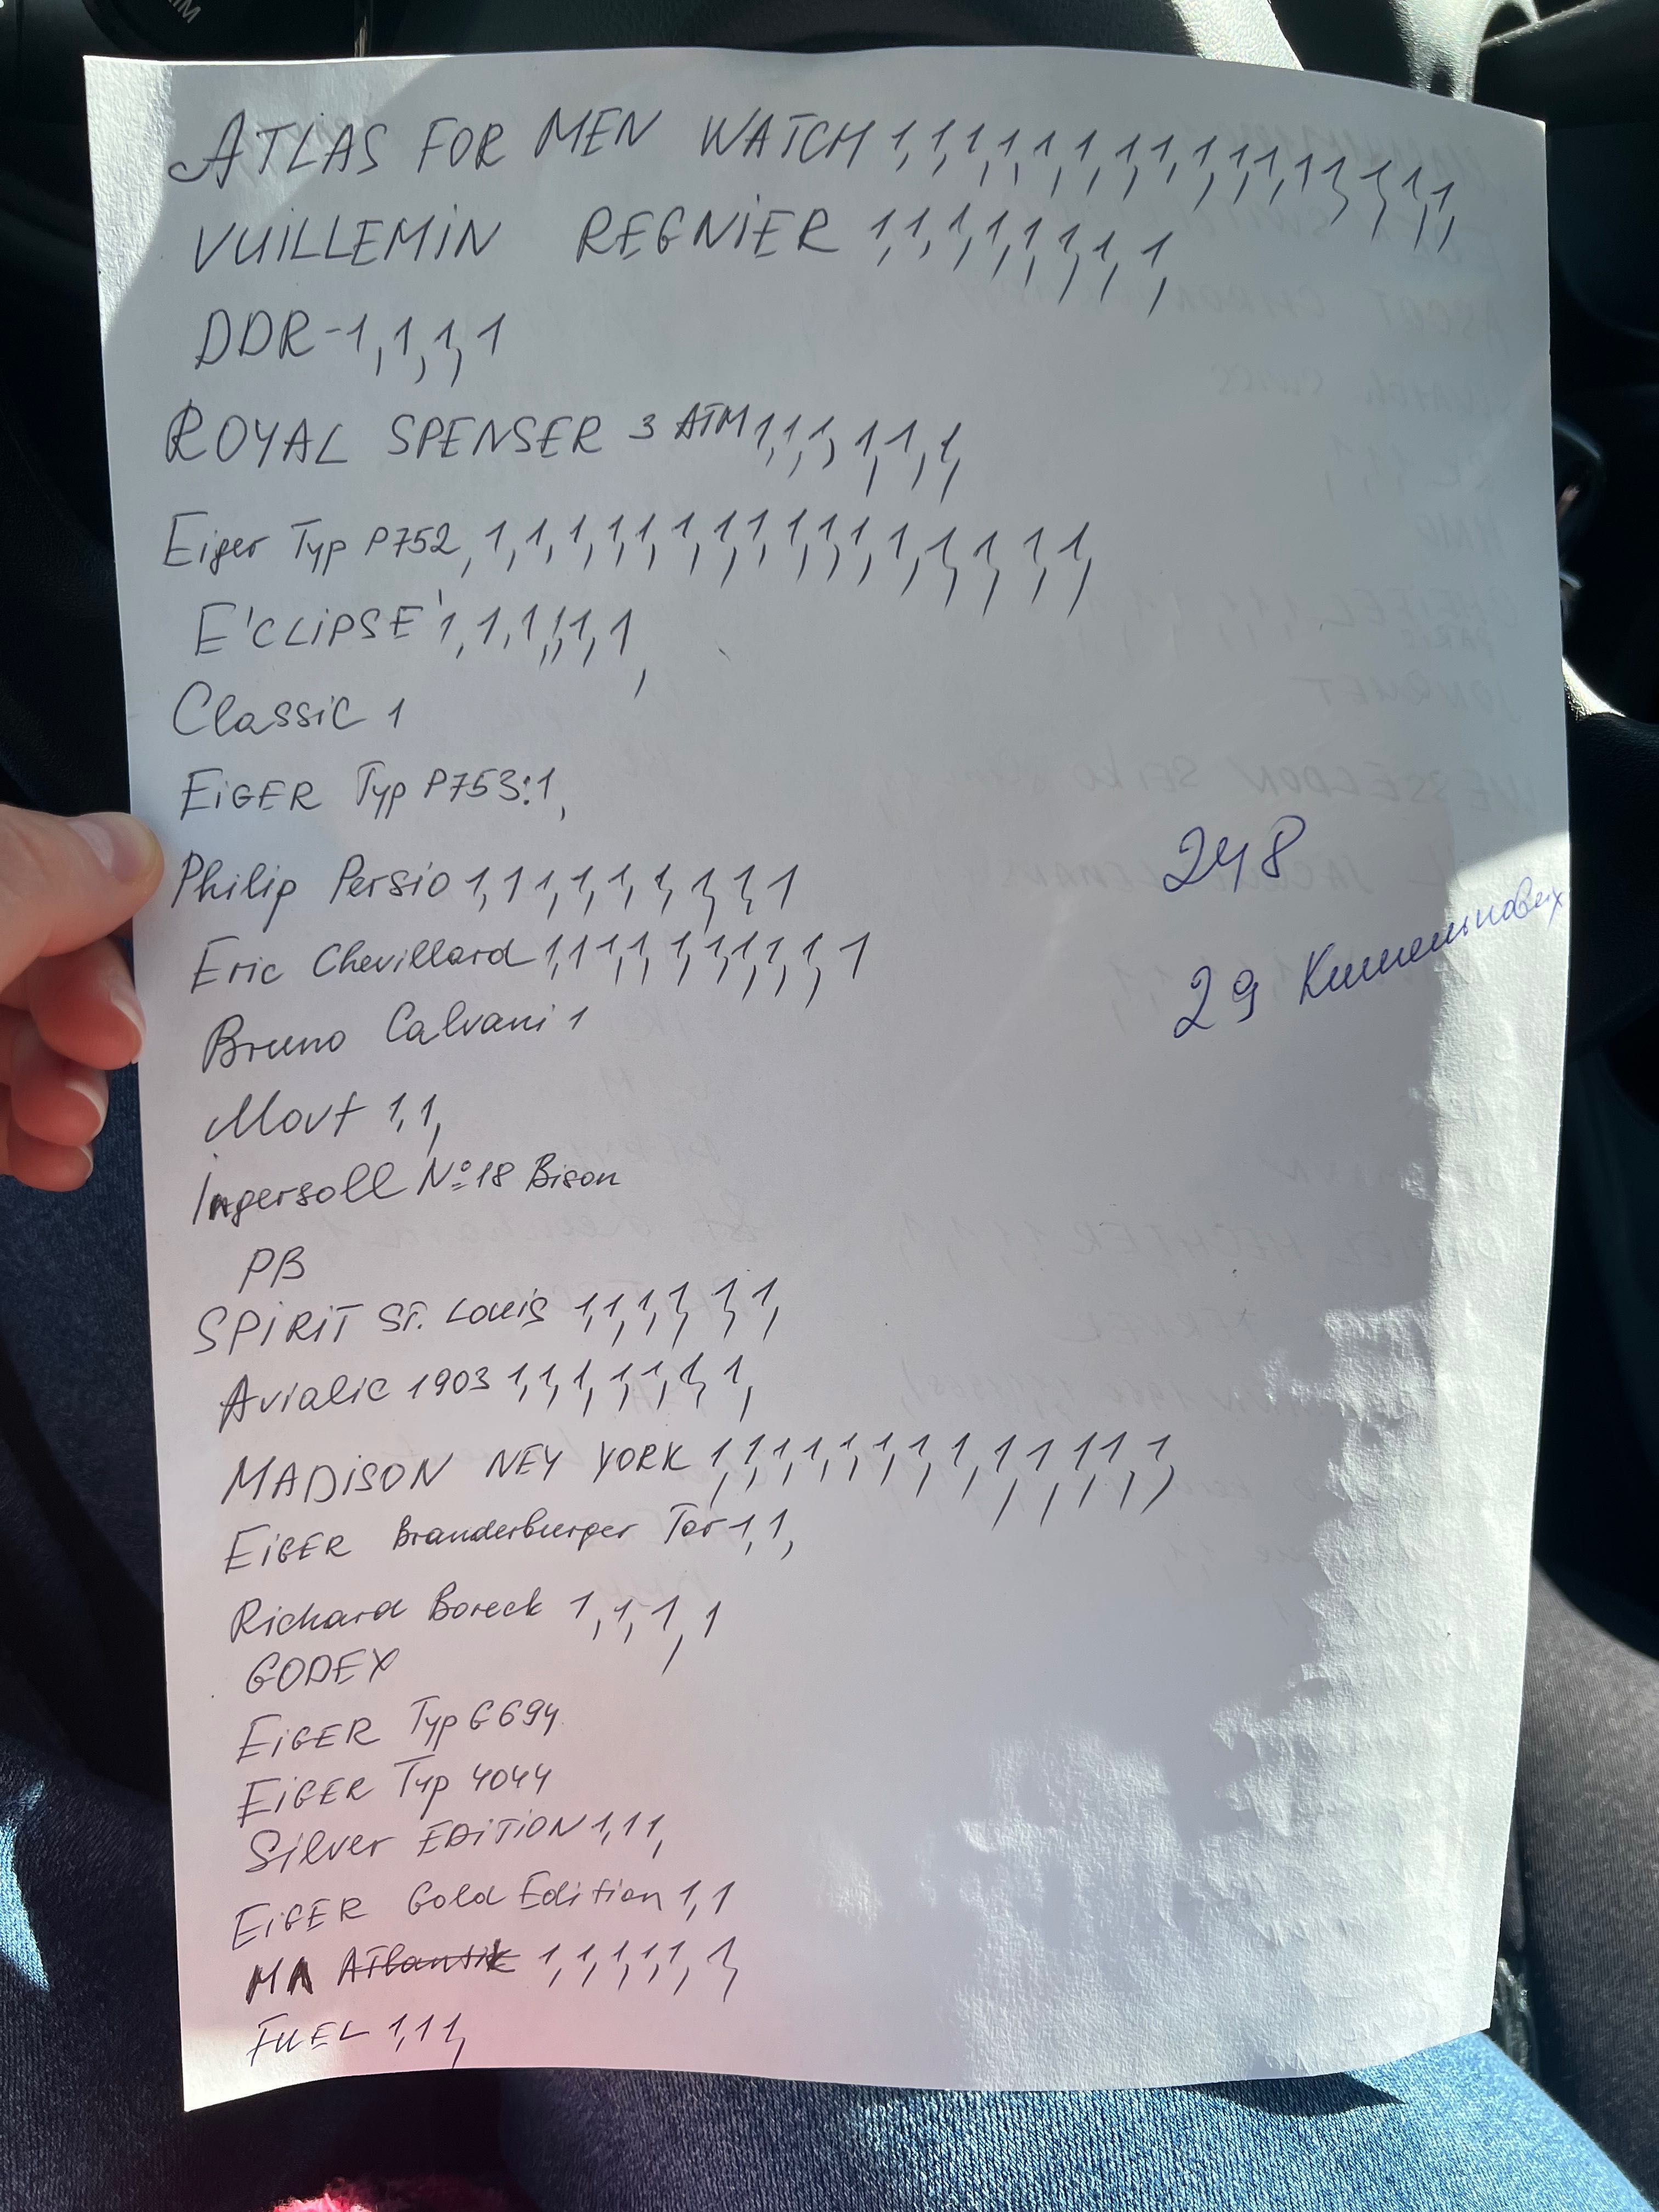 ATLAS FOR MEN WATCH 1,1,1,1,1,1,1,1,1,1,1,1,1,1,1,
VUILLEMIN REGNIER 1,1,1,1,1,1,1,1,
DDR-1,1,1,1
ROYAL SPENSER 3 ATM 1,1,1,1,1,1,
Eiger Typ P752, 1,1,1,1,1,1,1,1,1,1,1,1,1,1,1,
E'CLIPSE' 1,1,1,1,1,1,
Classic 1
EIGER Typ P753:1,
248
Philip Persio 1,1,1,1,1,1,1,1,1
29 Кишешновых
Eric Chevillard 1,1,1,1,1,1,1,1,1,1
Bruno Calvani 1
Movt 1,1,
Ingersoll №18 Bison
PB
SPIRIT ST. Louis 1,1,1,1,1,1,
Avialic 1903 1,1,1,1,1,1,1,
MADISON NEY YORK 1,1,1,1,1,1,1,1,1,1,1,1,1,
EIGER Branderburger Tor 1,1,
Richard Boreck 1,1,1,1
GODEX
EIGER Typ G694
EIGER Typ 4044
Silver EDITION 1,1 1,
EIGER Gold Edition 1,1
MA Atlantik 1,1,1,1,1,1,
FUEL 1,1 1,